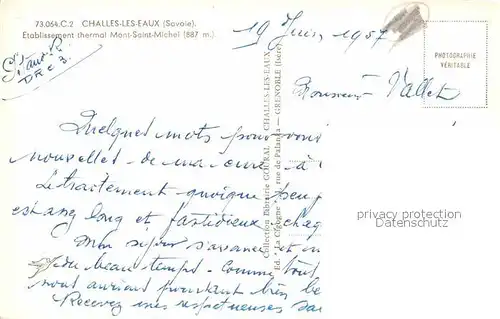 73.064.C.2 CHALLES-LES-EAUX (Savoie).
Établissement thermal Mont-Saint-Michel (887 m.)
19 Juin 1957
PHOTOGRAPHIE
VÉRITABLE
Monsieur Vallet
Quelques mots pour vous
nouvelles de ma cure à
Le traitement quoique peu
est assez long et fastidieux
Mon séjour s'avance et
du beau temps. Comme tout
nous aurions pourtant bien be
Recevez mes respectueuses sa
Collection Librairie GOURAL CHALLES-LES-EAUX
Ed. "La Cigogne" rue de Palanka — GRENOBLE (Isère)
privacy protection
Datenschutz